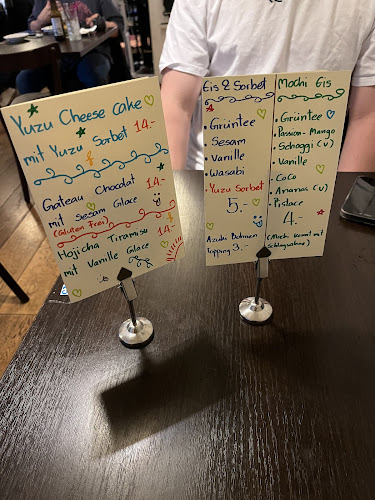 Yuzu Cheese cake
mit Yuzu Sorbet 14.-
Gateau Chocolat 14.-
mit Sesam Glace
(Gluten Frei)
Hojicha Tiramisu 14.-
mit Vanille Glace
Eis & Sorbet
• Grüntee
• Sesam
• Vanille
• Wasabi
• Yuzu Sorbet
5.-
Azuki Bohnen
Topping 3.-
Mochi Eis
• Grüntee
• Passion-Mango
• Schoggi (v)
• Vanille
• Coco
• Ananas (v)
• Pistace
4.-
(Mochi kommt mit
Schlagsahne)